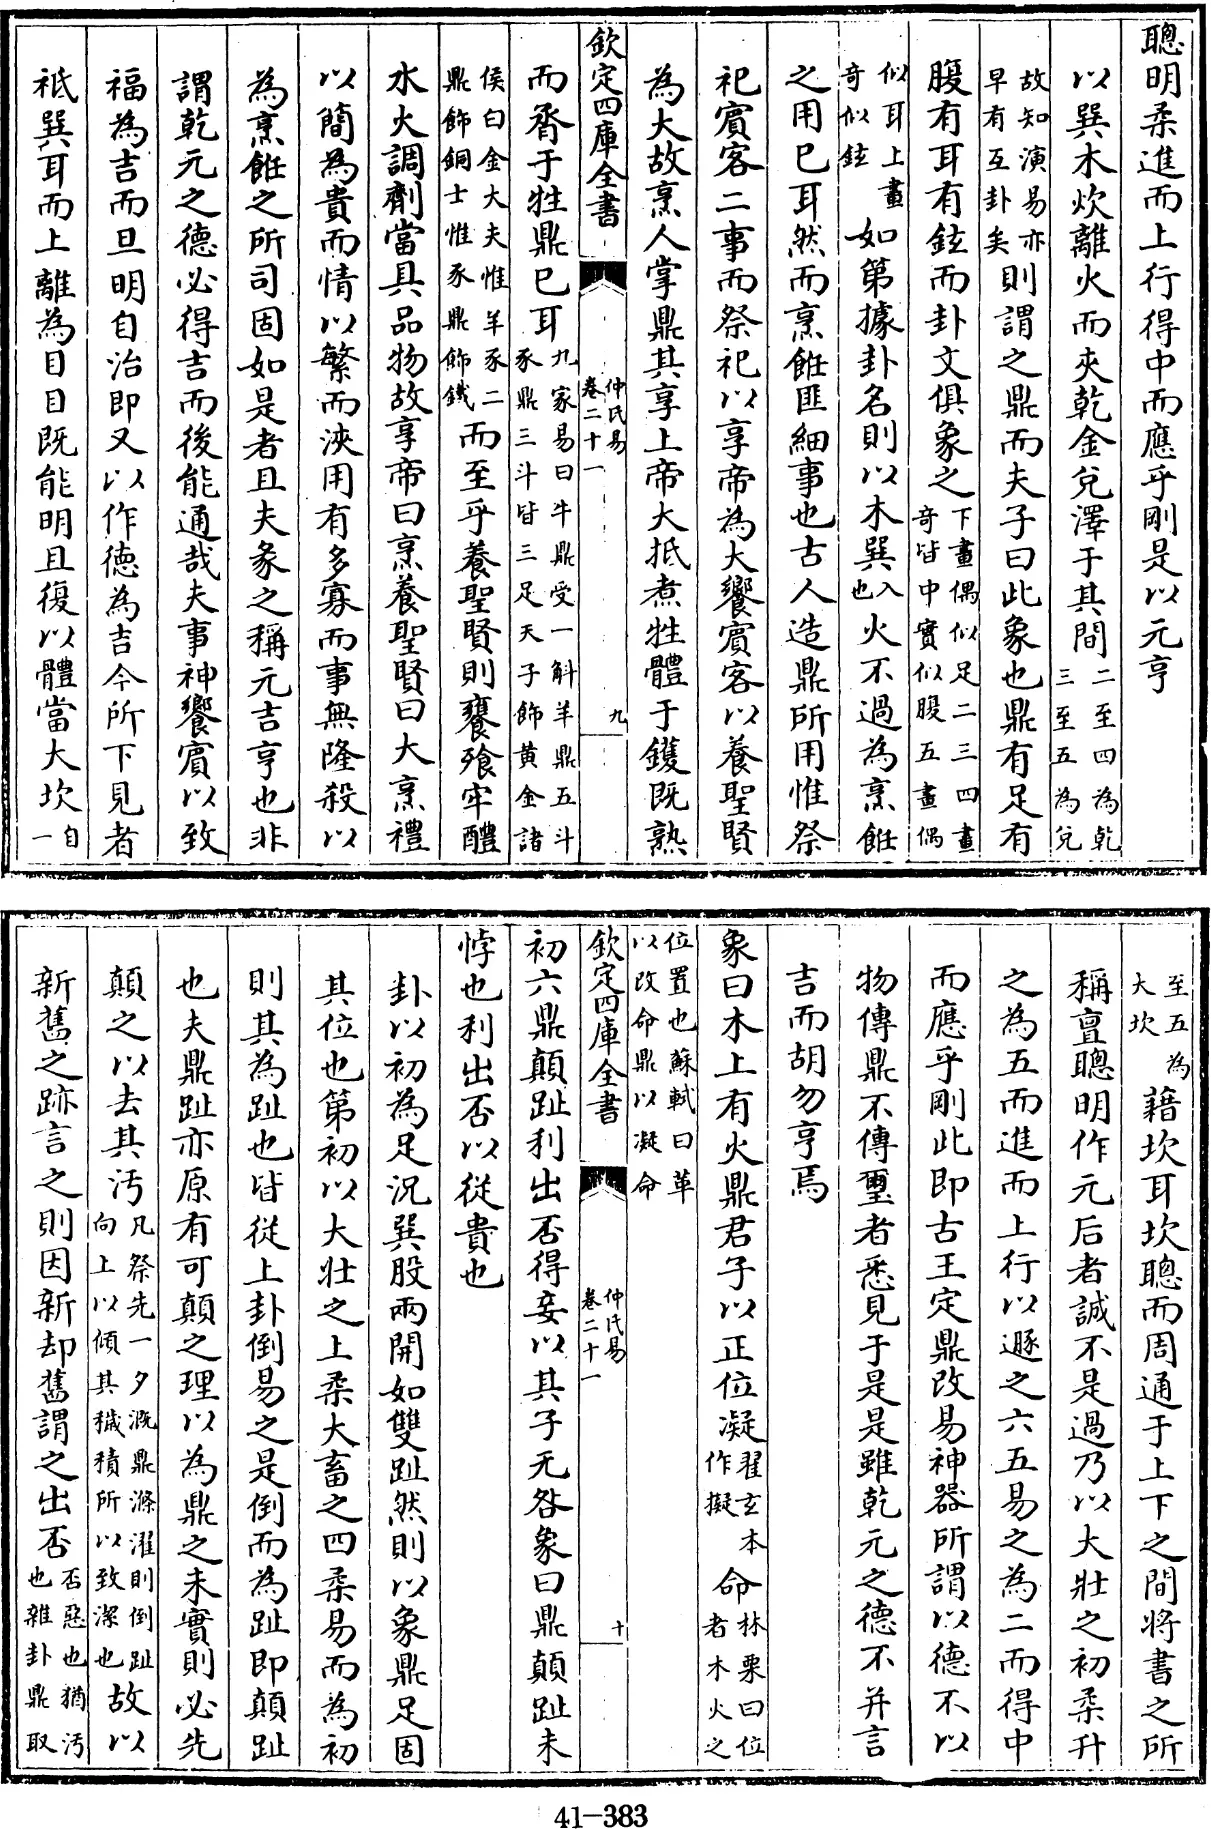 聰明柔進而上行得中而應乎剛是以元亨
以巽木炊離火而夾乾金兌澤于其間二至四為乾三至五為兌
故知演易亦早有互卦矣則謂之鼎而夫子曰此象也鼎有足有
腹有耳有鉉而卦文俱象之下畫偶似足二三四畫奇皆中實似腹五畫偶
似耳上畫奇似鉉如第據卦名則以木巽入也火不過為烹飪
之用已耳然而烹飪匪細事也古人造鼎所用惟祭
祀賓客二事而祭祀以享帝為大饗賓客以養聖賢
為大故烹人掌鼎其享上帝大抵煮牲體于鑊既熟
欽定四庫全書
仲氏易
卷二十一
九
而胥于牲鼎已耳九家易曰牛鼎受一斛羊鼎五斗豕鼎三斗皆三足天子飾黃金諸
侯白金大夫惟羊豕二鼎飾銅士惟豕鼎飾鐵而至乎養聖賢則饔飱牢醴
水火調劑當具品物故享帝曰烹養聖賢曰大烹禮
以簡為貴而情以繁而浹用有多寡而事無隆殺以
為烹飪之所司固如是者且夫彖之稱元吉亨也非
謂乾元之德必得吉而後能通哉夫事神饗賓以致
福為吉而旦明自治即又以作德為吉今所下見者
祇巽耳而上離為目目既能明且復以體當大坎自一
至五為大坎藉坎耳坎聰而周通于上下之間將書之所
稱亶聰明作元后者誠不是過乃以大壯之初柔升
之為五而進而上行以遯之六五易之為二而得中
而應乎剛此即古王定鼎改易神器所謂以德不以
物傳鼎不傳璽者悉見于是是雖乾元之德不并言
吉而胡勿亨焉
象曰木上有火鼎君子以正位凝翟玄本作擬命林栗曰位者木火之
位置也蘇軾曰革以改命鼎以凝命
欽定四庫全書
仲氏易
卷二十一
十
初六鼎顛趾利出否得妾以其子无咎象曰鼎顛趾未
悖也利出否以從貴也
卦以初為足況巽股兩開如雙趾然則以象鼎足固
其位也第初以大壯之上柔大畜之四柔易而為初
則其為趾也皆從上卦倒易之是倒而為趾即顛趾
也夫鼎趾亦原有可顛之理以為鼎之未實則必先
顛之以去其污凡祭先一夕溉鼎滌濯則倒趾向上以傾其穢積所以致潔也故以
新舊之跡言之則因新却舊謂之出否否惡也猶污也雜卦鼎取
41-383